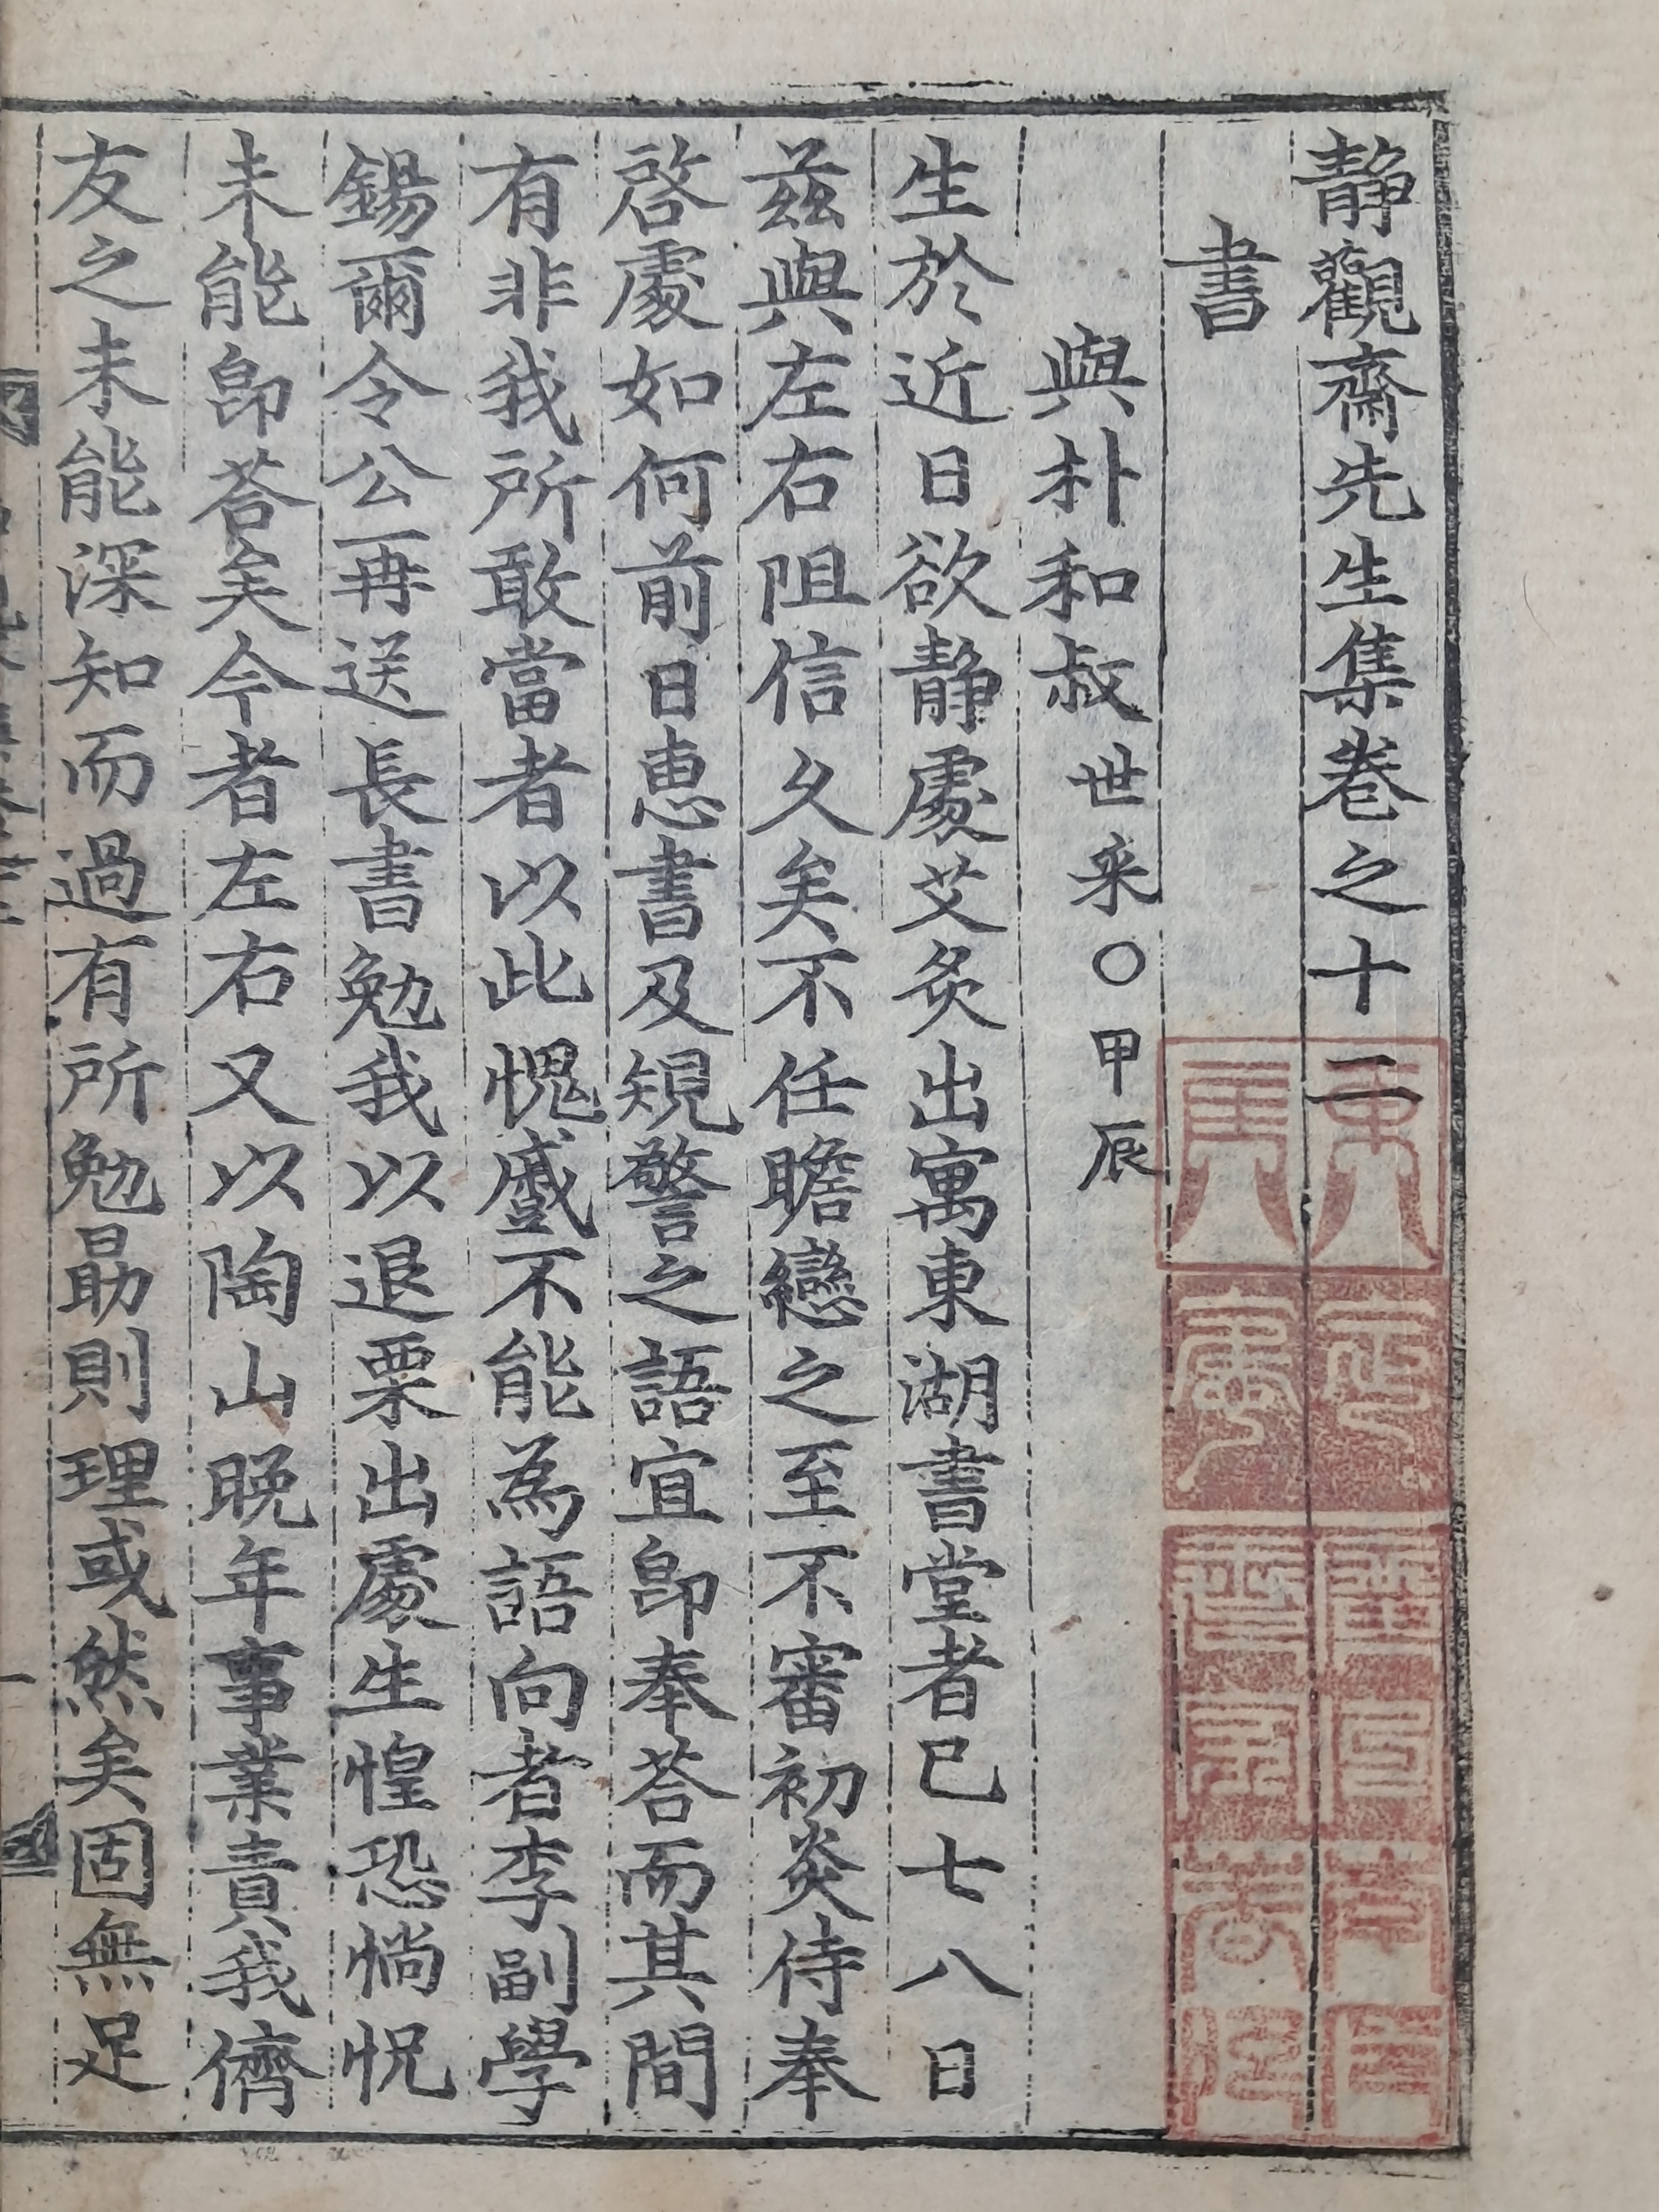 静觀齋先生集卷之十二
書
與朴和叔世采○甲辰
生於近日欲静處艾灸出寓東湖書堂者已七八日
茲與左右阻信久矣不任瞻戀之至不審初炎侍奉
啓處如何前日惠書及規警之語宜卽奉荅而其間
有非我所敢當者以此愧蹙不能為語向者李副學
錫爾令公再送長書勉我以退栗出處生惶恐惝怳
未能卽荅矣今者左右又以陶山晚年事業責我儕
友之未能深知而過有所勉勗則理或然矣固無足